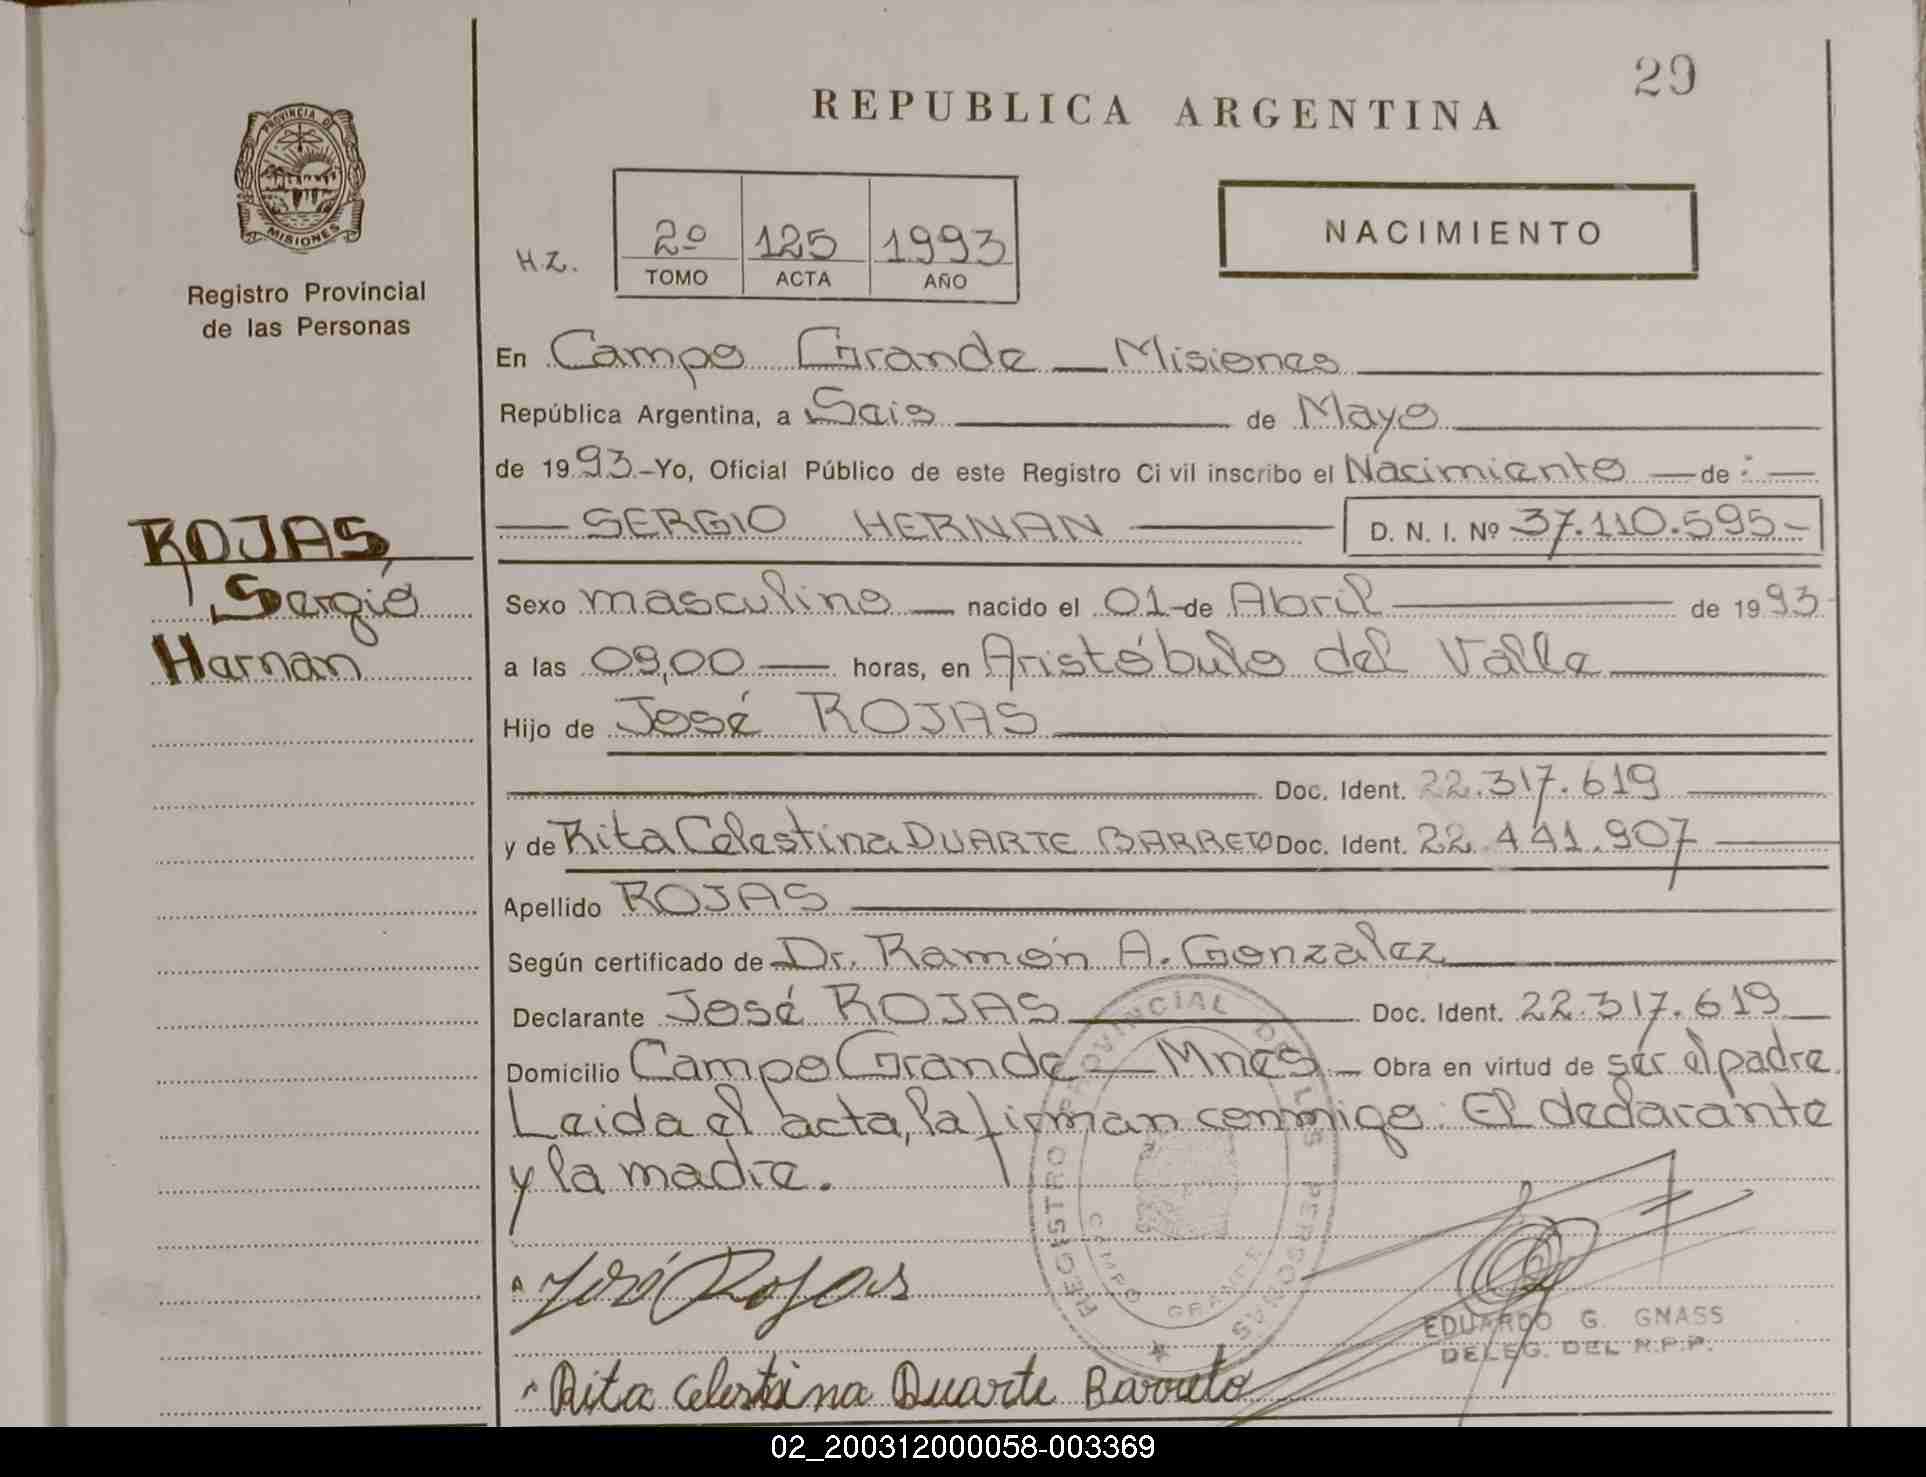 29
REPUBLICA ARGENTINA
PROVINCIA DE
MISIONES
Registro Provincial
de las Personas
H.Z.
2º 125 1993
TOMO ACTA AÑO
NACIMIENTO
En Campo Grande — Misiones
República Argentina, a Seis de Mayo
de 1993 - Yo, Oficial Público de este Registro Civil inscribo el Nacimiento — de : —
— SERGIO HERNAN — D. N. I. Nº 37.110.595-
ROJAS,
Sergio
Hernan
Sexo masculino — nacido el 01 - de Abril — de 1993
a las 09,00 — horas, en Aristóbulo del Valle
Hijo de José ROJAS
Doc. Ident. 22.317.619
y de Rita Celestina DUARTE BARRETO Doc. Ident. 22.441.907
Apellido ROJAS
Según certificado de Dr. Ramón A. Gonzalez
Declarante José ROJAS Doc. Ident. 22.317.619
Domicilio Campo Grande — Mnes — Obra en virtud de ser el padre.
Leida el acta, la firman conmigo: El declarante
y la madre.
REGISTRO PROVINCIAL DE LAS PERSONAS
CAMPO GRANDE
José Rojas
EDUARDO G. GNASS
DELEG. DEL R.P.P.
Rita Celestina Duarte Barreto
02_200312000058-003369